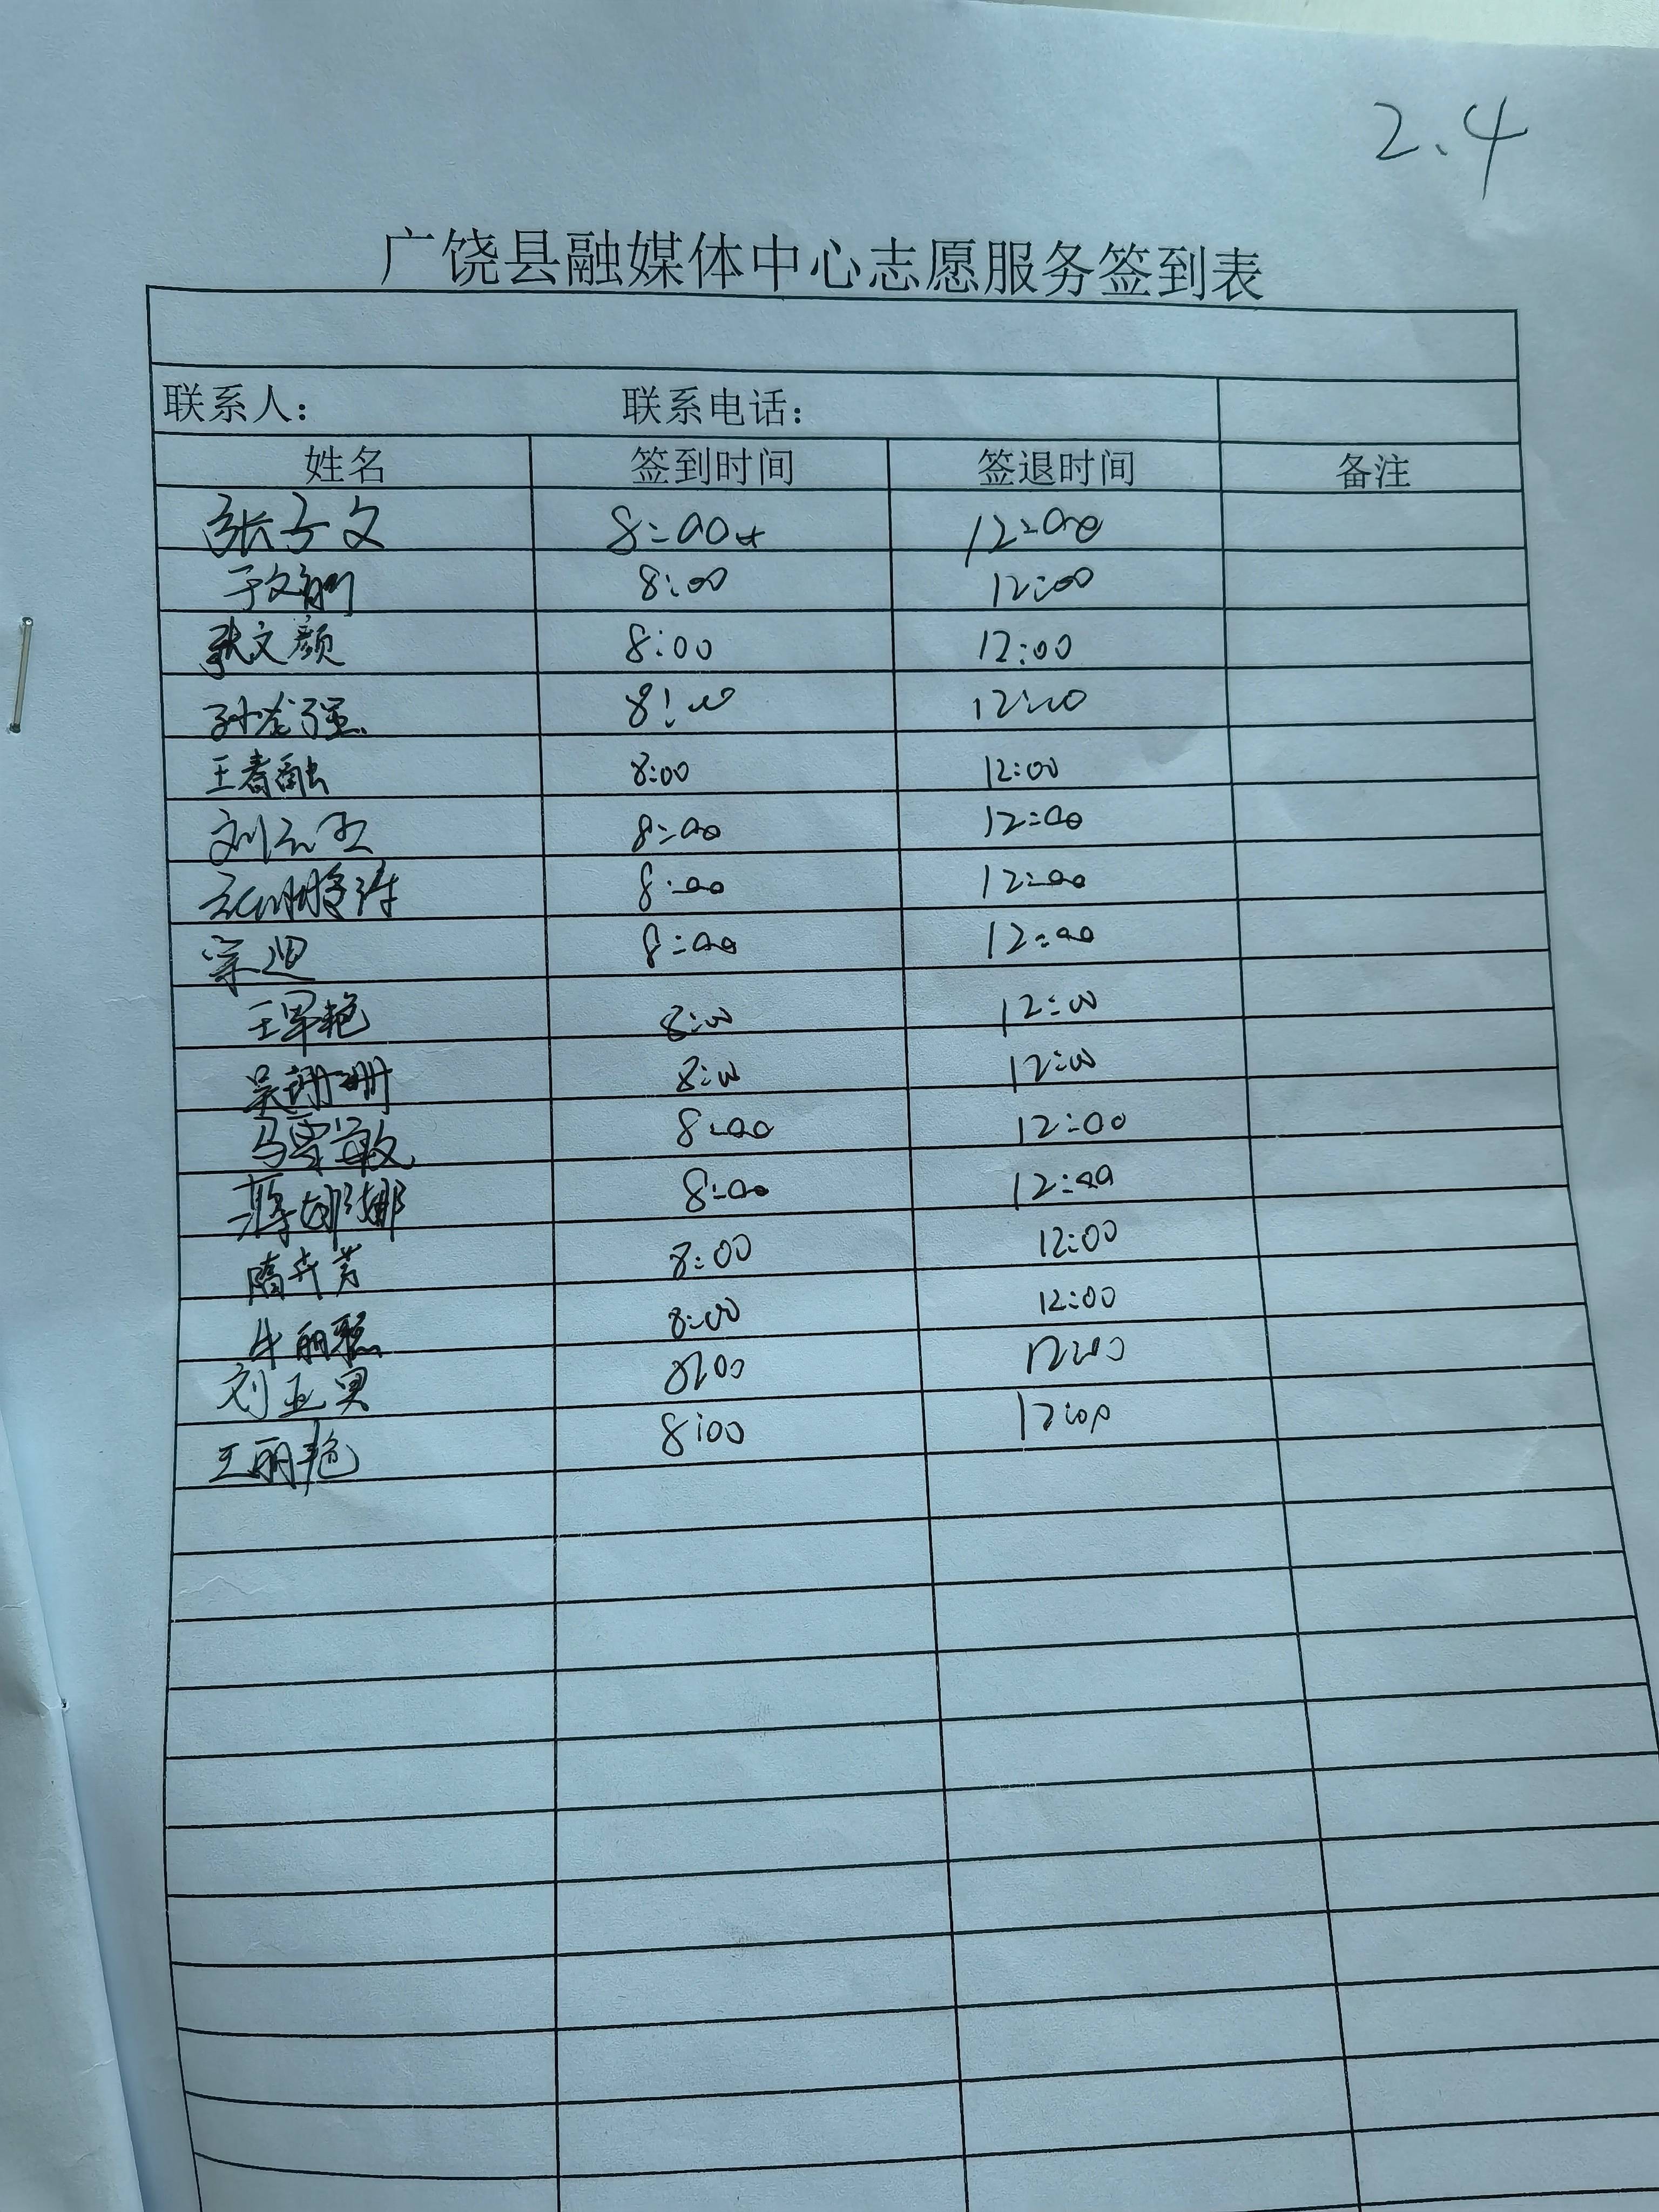 2.4
广饶县融媒体中心志愿服务签到表
联系人： 联系电话：
姓名 签到时间 签退时间 备注
张子文 8:00 12:00
于文 8:00 12:00
张文颜 8:00 12:00
孙 强 8:00 12:00
王春融 8:00 12:00
刘云 8:00 12:00
8:00 12:00
宋迎 8:00 12:00
王军艳 8:00 12:00
吴珊珊 8:00 12:00
马雪敏 8:00 12:00
蒋娜娜 8:00 12:00
隋卉芳 8:00 12:00
牛丽聪 8:00 12:00
刘亚男 8:00 12:00
王丽艳 8:00 12:00